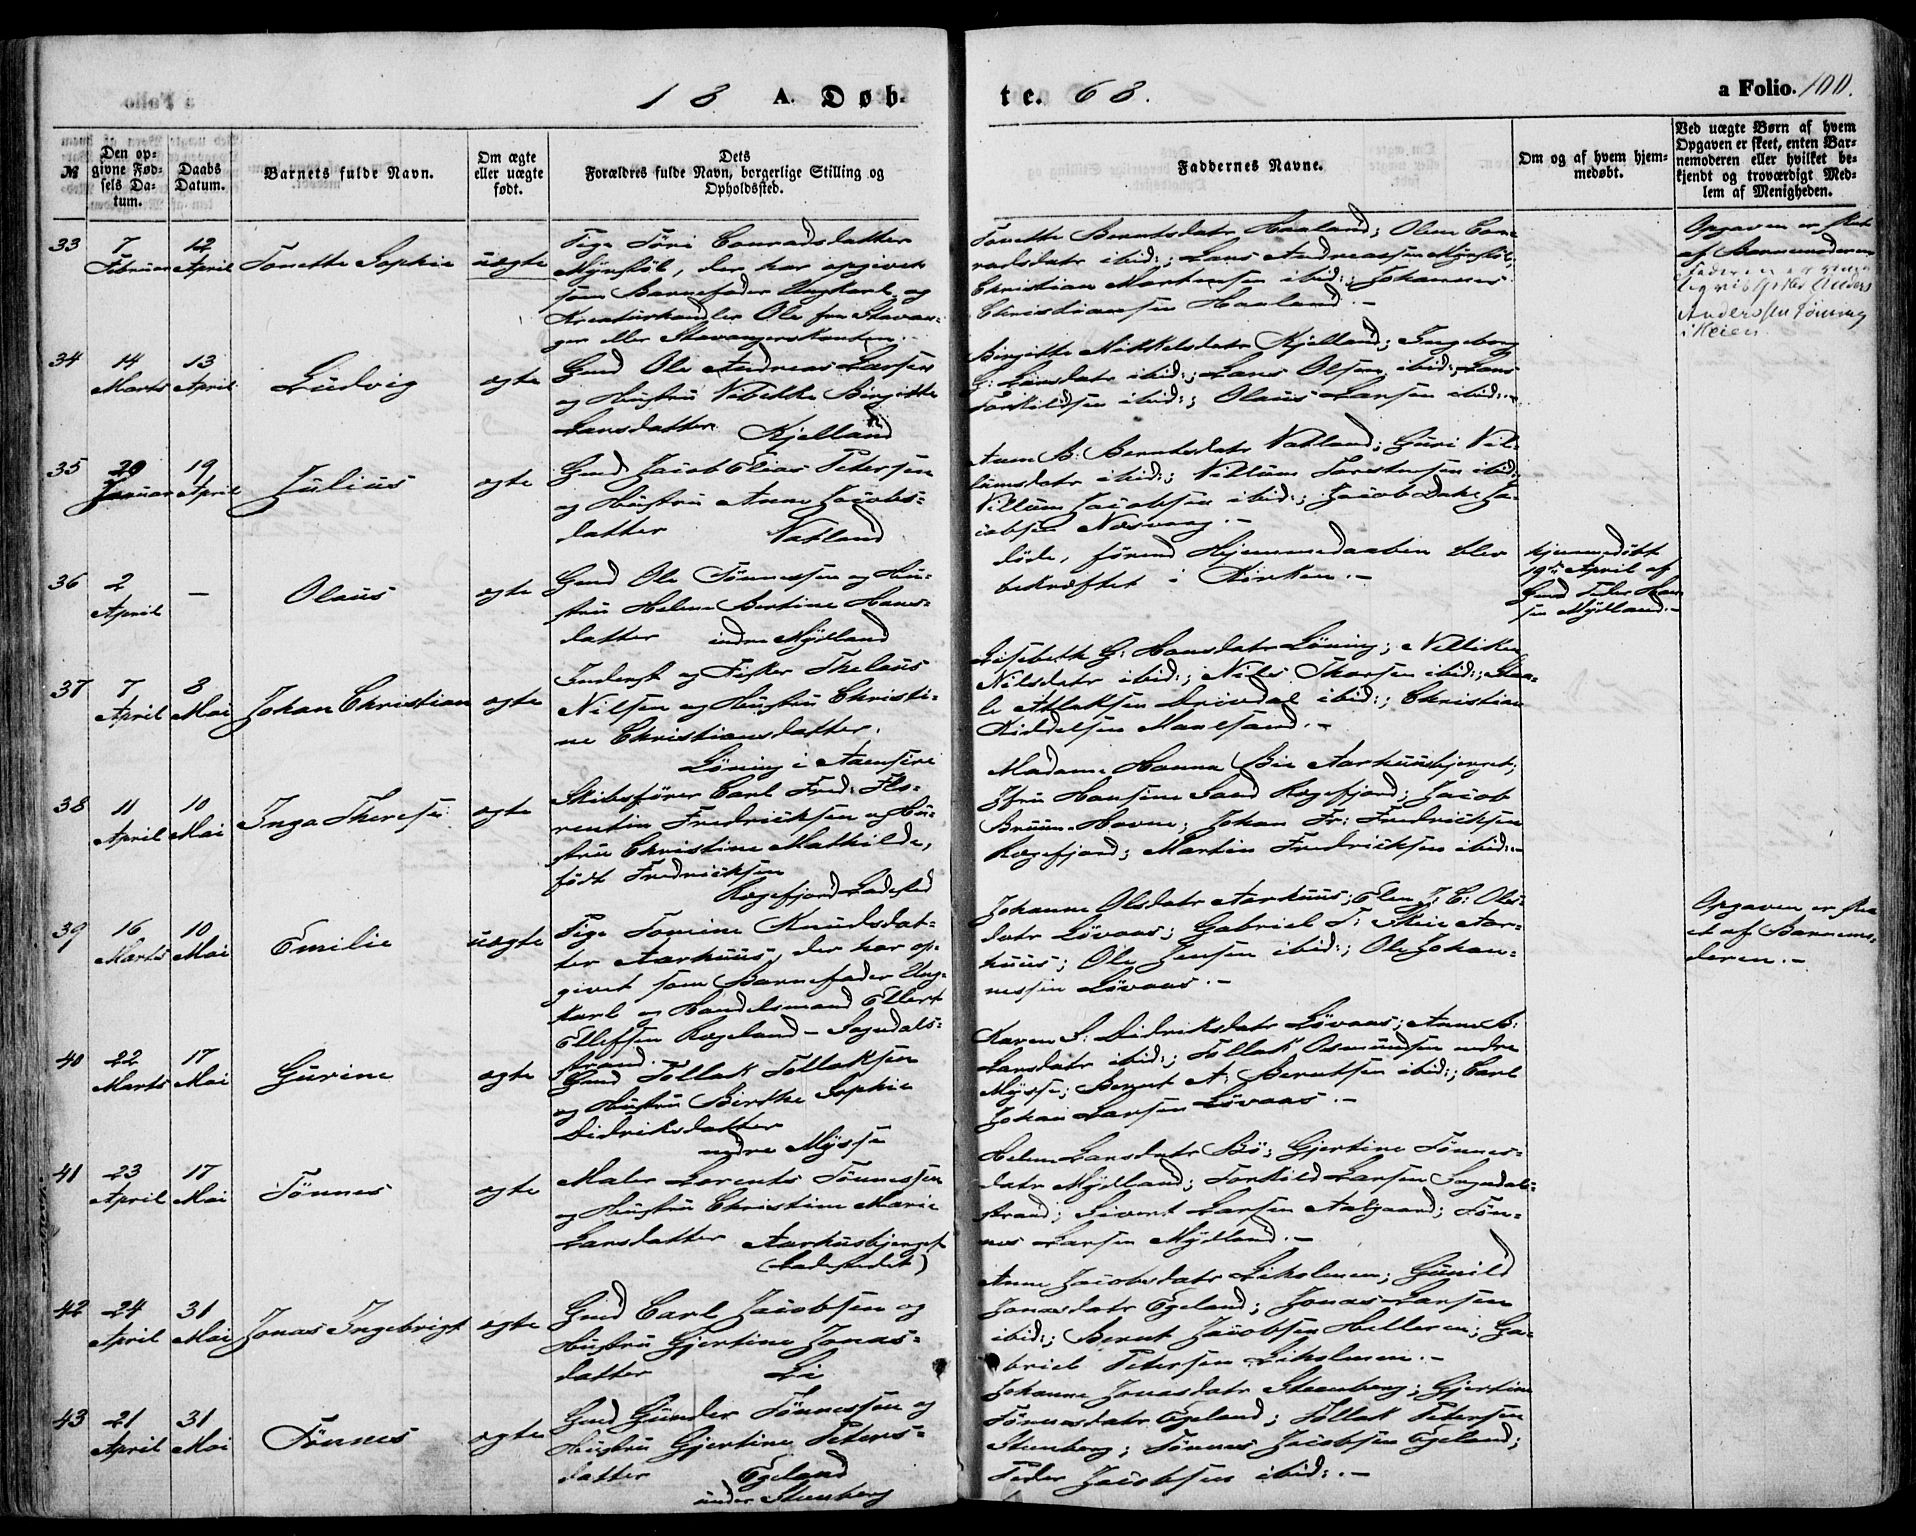 18 A. Døb-
te. 68.
a Folio. 100.
№
Den op-
givne Fød-
sels Da-
tum.
Daabs
Datum.
Barnets fulde Navn.
Om ægte
eller uægte
født.
Dets
Forældres fulde Navn, borgerlige Stilling og
Opholdssted.
Faddernes Navne.
Om og af hvem hjem-
medøbt.
Ved uægte Børn af hvem
Opgaven er skeet, enten Bar-
nemoderen eller hvilket be-
kjendt og troværdigt Med-
lem af Menigheden.
33
7
Februar
12
April
Tonette Sophie
uægte
Pige Tøri Conradsdatter
Mÿnsløl, der har opgivet
som Barnefader Ungkarl og
Kreaturhandler Ole fra Stavan-
ger eller Stavangerskanten.
Tonette Berntsdatr Haaland; Oline Con-
radsdatr ibid:; Lars Andreassen
Christian Martensen ibid:; Johannes
Christiansen Haaland.-
Opgaven er skeet
af Barnemoderen
Anderssen Løning
34
14
Marts
13
April
Ludvig
ægte
Gmd Ole Andreas Larsen
og Hustru Vibekke Birgitte
Larsdatter Kjelland
Birgitte Mikkelsdatr Kjelland; Ingeborg
G: Larsdatr ibid:; Lars Olsen ibid:; Lars
Torkildsen ibid:; Olaus Larsen ibid:-
35
20
Januar
19
April
Julius
ægte
Gmd Jacob Elias Petersen
og Hustru Anne Jacobs-
datter Vatland
Anne B: Berntsdatr Vatland; Guri Vil-
lumsdatr ibid:; Villum Torstensen ibid:;
Villum Jacobsen ibid:; Jacob Dahl Ja-
cobsen Nesvaag.-
36
2
April
-
Olaus
ægte
Gmd Ole Tønnessen og Hu-
stru Helene Bertine Hans-
datter indre Mÿdland
døde, førend Hjemmedaaben blev
bekræftet i Kirken.-
Hjemmedøbt
19de April af
Gmd Peder Han-
sen Mÿdland.-
37
7
April
3
Mai
Johan Christian
ægte
Inderst og Fisker Thelaus
Nilsen og Hustru Christi-
ne Christiansdatter.
Løning i Aaensire
Lisebeth G: Hansdatr Løning; Villikea
Nilsdatr ibid:; Niels Thorsen ibid:; Staa-
le Atlaksen Drivdal ibid:; Christian
Kiddelsen
38
11
April
10
Mai
Inga Therese
ægte
Skibsfører Carl Fred: Flo-
rentin Fredricksen og Hu-
stru Christine Mathilde,
født Fredricksen
Rægefjord Ladested
Madame Hanna Bie Aarhuusbjerget;
Jfru Hansine Sand Rægefjord; Jacob
Bruun Havne; Johan Fr: Fredricksen
Rægefjord; Martin Fredricksen ibid:-
39
16
Marts
10
Mai
Emilie
uægte
Pige Tomine Knudsdat-
ter Aarhuus, der har op-
givet som Barnefader Ung-
karl og Handelsmand Ellert
Ellefsen Rægeland - Sogndals-
strand
Johanne Olsdatr Aarhuus; Elen J: C: Ols-
datr Løvaas; Gabriel T: Skeie Aar-
huus; Ole Jensen ibid:; Ole Johan-
nessen Løvaas.-
Opgaven er ske-
et af Barnemo-
deren.-
40
22
Marts
17
Mai
Gurine
ægte
Gmd Tollak Tollaksen
og Hustru Birthe Sophie
Didriksdatter
nedre Mÿsse
Karen S: Didriksdatr Løvaas; Anne B:
Larsdatr ibid:; Tollak Osmundsen nedre
Mÿsse; Bernt A: Berntsen ibid:; Carl
Johan Larsen Løvaas.-
41
23
April
17
Mai
Tønnes
ægte
Maler Lorents Tønnessen
og Hustru Christine Marie
Larsdatter Aarhusbjerget
(Ladestedet)
Helene Larsdatr Bø; Gjertine Tønnes-
datr Mÿdland; Torkild Larsen Sogndal-
strand; Sivert Larsen Aalgaard; Tøn-
nes Larsen Mÿdland.-
42
24
April
31
Mai
Jonas Ingebrigt
ægte
Gmd Carl Jacobsen og
Hustru Gjertine Jonas-
datter Li
Anne Jacobsdatr Liholmen; Gunild
Jonasdatr Egeland; Jonas Larsen
ibid:; Bernt Jacobsen Helleren; Ga-
briel Petersen Liholmen.-
43
21
April
31
Mai
Tønnes
ægte
Gmd Gunder Tønnessen og
Hustru Gjertine Peters-
datter Egeland
under Steenberg
Johanne Jonasdatr Steenberg; Gjertine
Tønnesdatr Egeland; Tollak Petersen
Steenberg; Tønnes Jacobsen Egeland;
Peder Jacobsen ibid:.-